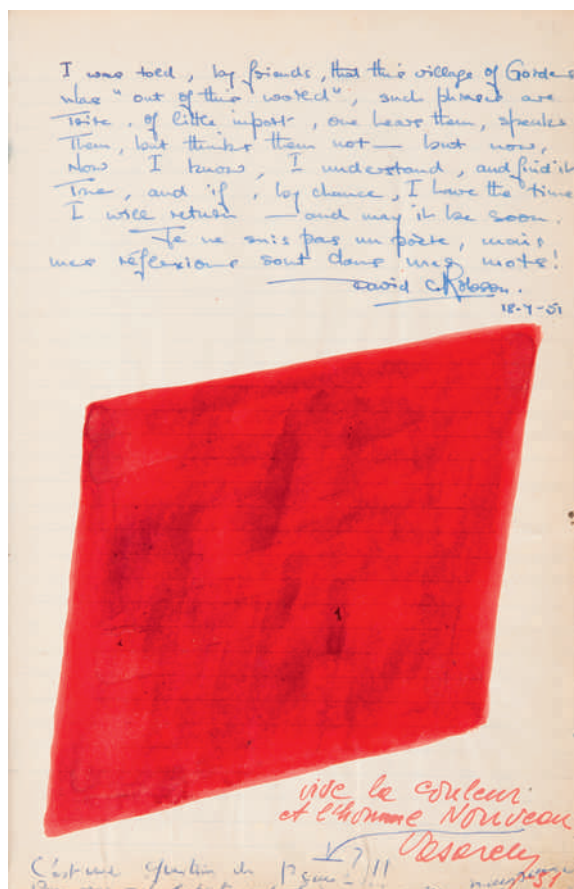 I was told, by friends, that this village of Gordes
was "out of this world", such phrases are
trite, of little import, one hears them, speaks
them, but thinks them not — but now,
Now I know, I understand, and find it
true, and if, by chance, I have the time
I will return — and may it be soon.
Je ne suis pas un poète, mais
mes réflexions sont dans mes mots!
David C. Robson.
18-7-51
vive la couleur
et l'homme Nouveau
Vasarely
51
C'est une question de